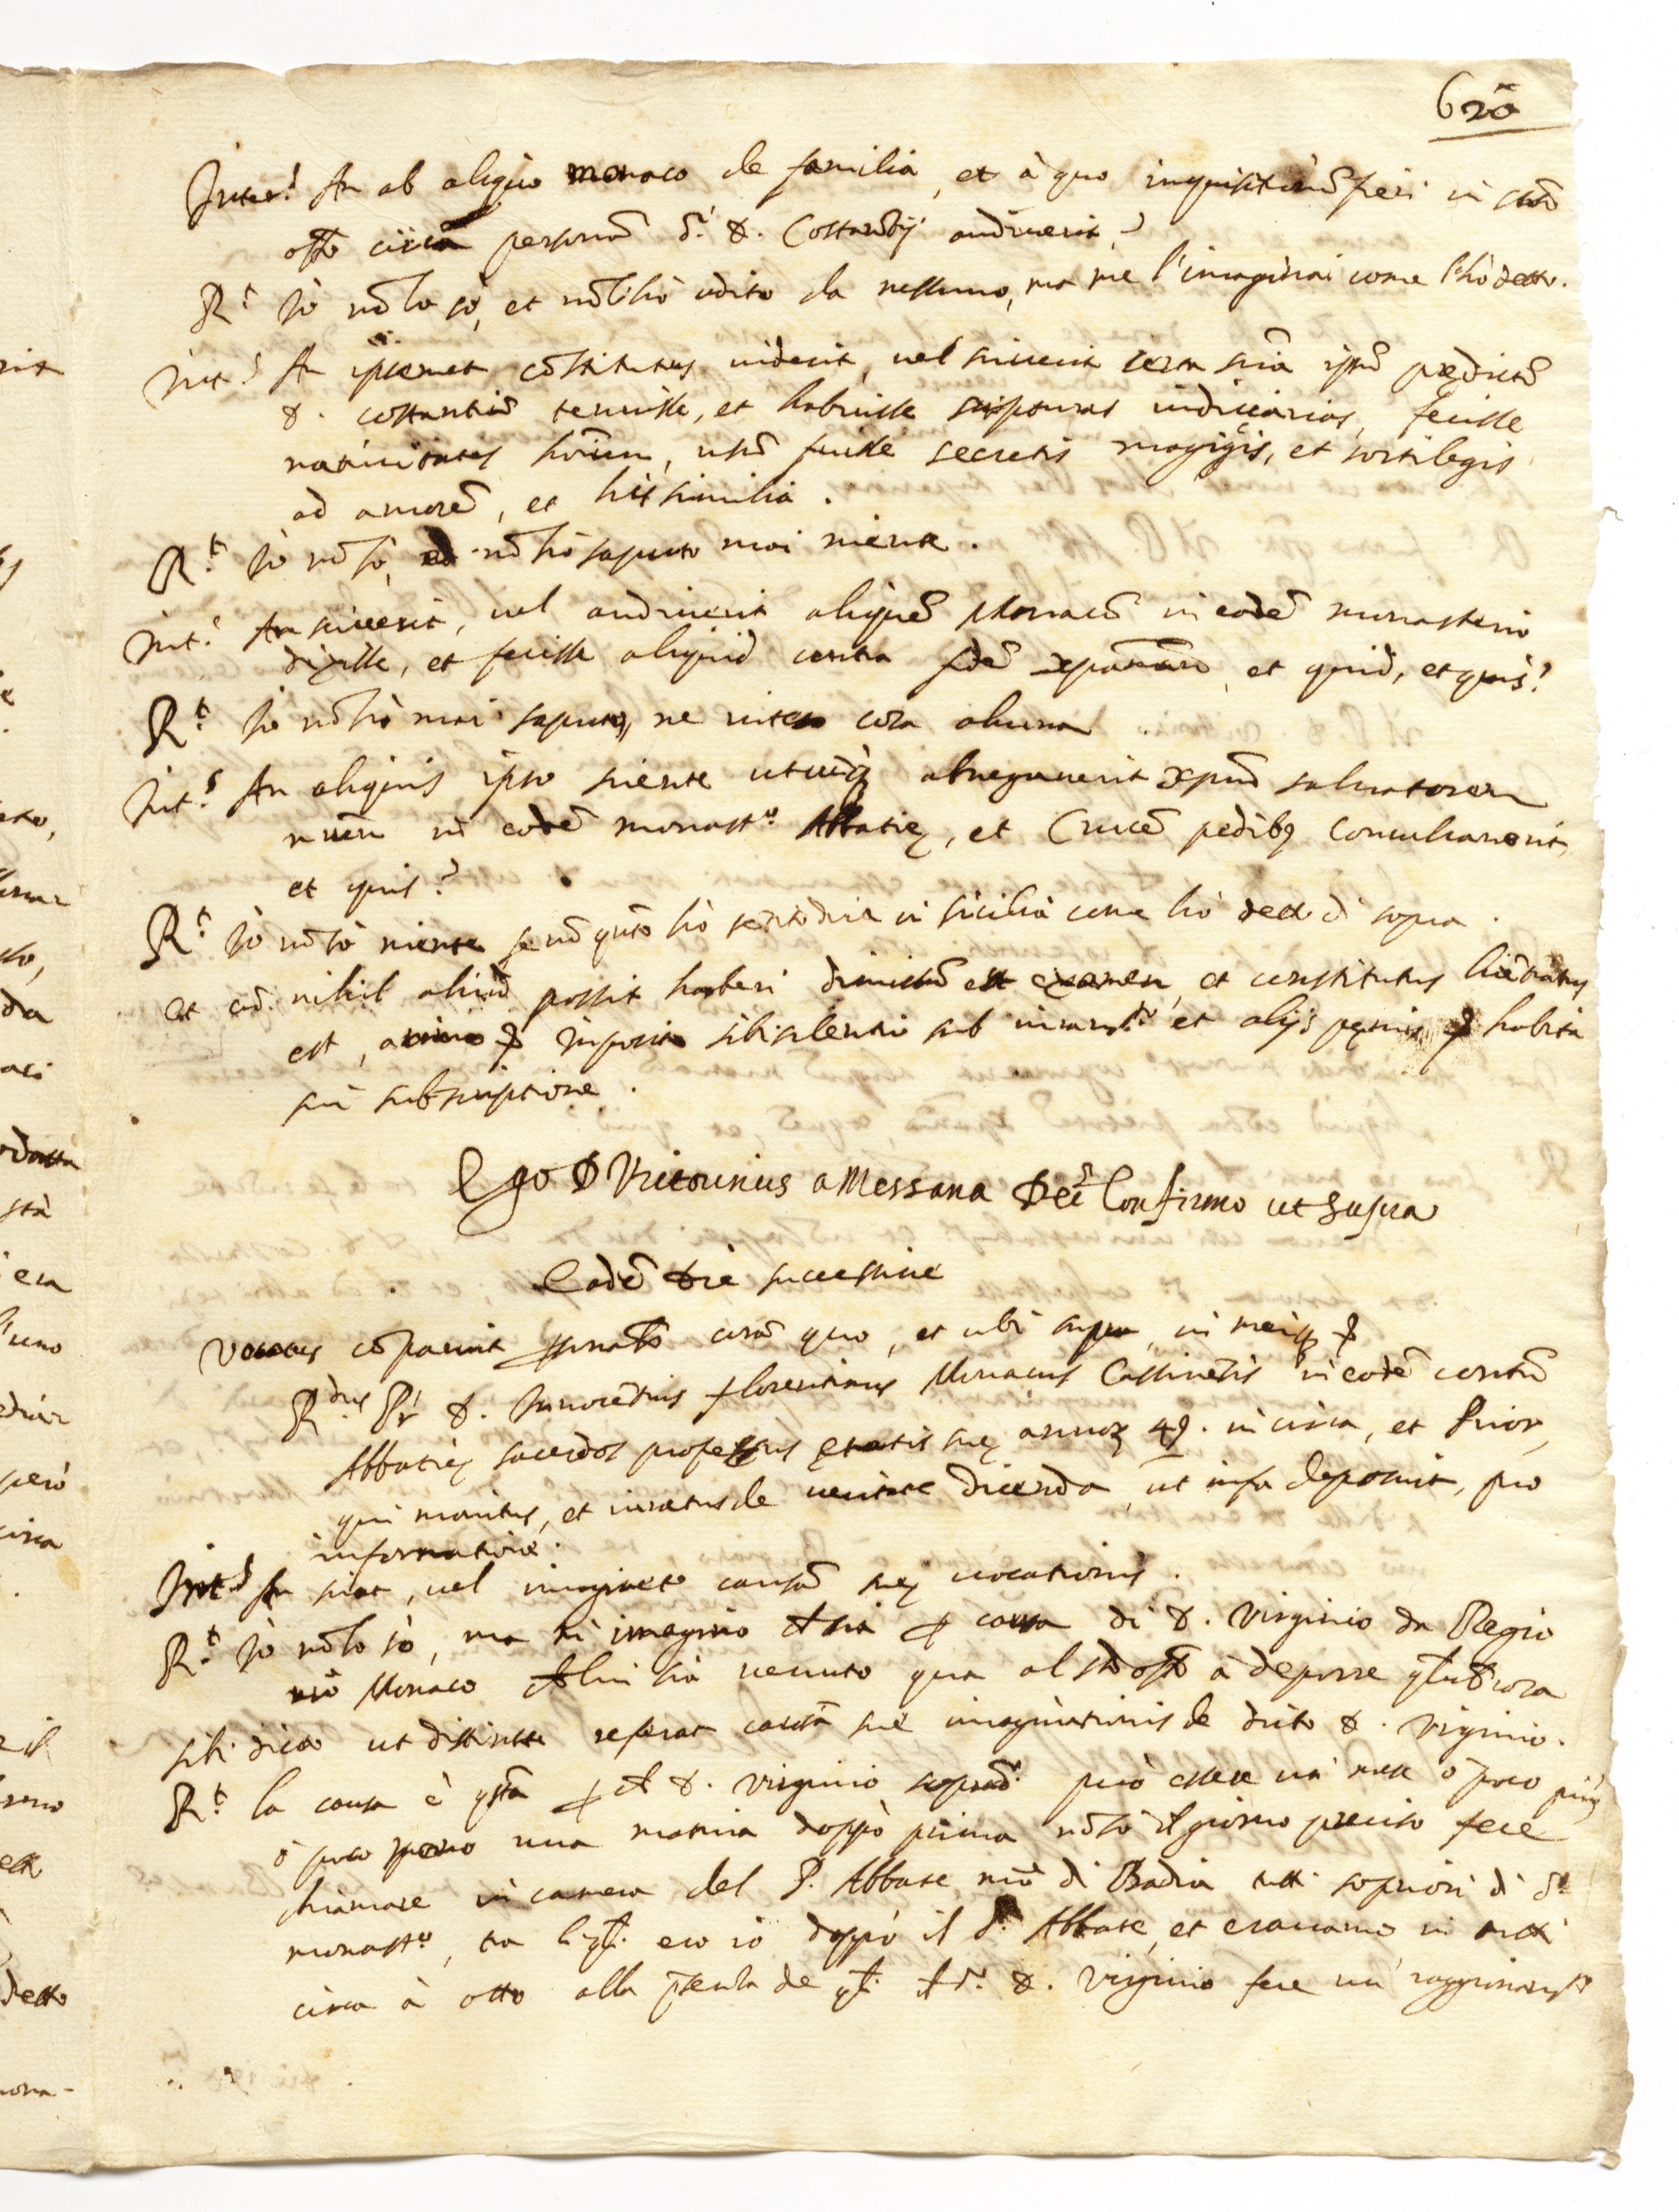 620
Int.s An ab aliquo monaco de familia, et à quo inquisitionẽ fieri in sto
offo circa personã d.i D. Costantij audiverit?
R.t Io nõ lo sò, et nõ l'hò udito da nessuno, ma me l'imaginai come l'hò detto.
Int.s An ipsemet cõstitutus viderit, vel sciverit ipsũ predictũ
D. costantiũ tenuisse, et habuisse scripturas iudiciarias, fecisse
nativitates hõium, usũ fuisse secretis magigis, et sortilegis
ad amorẽ, et his similia.
R.t Io nõ sò, ed nõ hò saputo mai niente.
Int.s An sciverit, vel audiverit aliquẽ Monacũ in eodẽ monasterio
dixisse, et fecisse aliquid contra fidẽ xpanam et quid, et quis?
R.t Io nõ hò mai saputo, ne inteso cosa alcuna
Int.s An aliquis ipso sciente utcũq abnegaverit xpũm salvatorem
nrũm in eodẽ monast.o Abbatię, et Crucẽ pedibq conculcaverit,
et quis?
R.t Io nõ sò niente se nõ qũto hò sentito dire in sicilia come hò detto di sopra.
et cũ nihil aliud possit haberi dimissũ est examen, et constitutus licẽtiatus
est, animo &c iniposito sibi silentio sub iuram.to et alijs pęnis &c habita
sui subscriptione.
Ego D Vitorinus a Messana Dec.s Confirmo ut supra
Eadẽ die successive
Vocatus cõparuit psonalr̃ corã quo, et ubi supra, in meiq &c
R.dus Pr̃ D. Innocẽtius florentinus Monacus Cassinẽsis in eodẽ
Abbatię sacerdos professus ętatis suę annor 49. in circa, et Prior,
qui monitus, et iuratus de veritate dicenda, ut infra deposuit, pro
informatione.
Int.s An sciat, vel imaginet.r causã suę vocationis.
R.t Io nõ lo sò, ma mi imagino ch sia p causa di D. Virginio da Regio
nr̃o Monaco ch lui sia venuto qua al sto offo à deporre qlche cosa
sibi dicto ut distincte referat causã suę imaginationis de dicto D. Virginio.
R.t la causa è qsta p ch D. Virginio sopradº può essere un mese ò poco più,
ò poco meno una matina doppò prima nõ sò il giorno preciso fece
chiamare in camera del P. Abbate nr̃o di Badia tutti sopriori di d.o
monast.o, tra li qli. ero io doppò il d.o Abbate, et eravamo in tutti
circa à otto alla psenza de qli. il d.o D. Virginio fece un raggionam.to